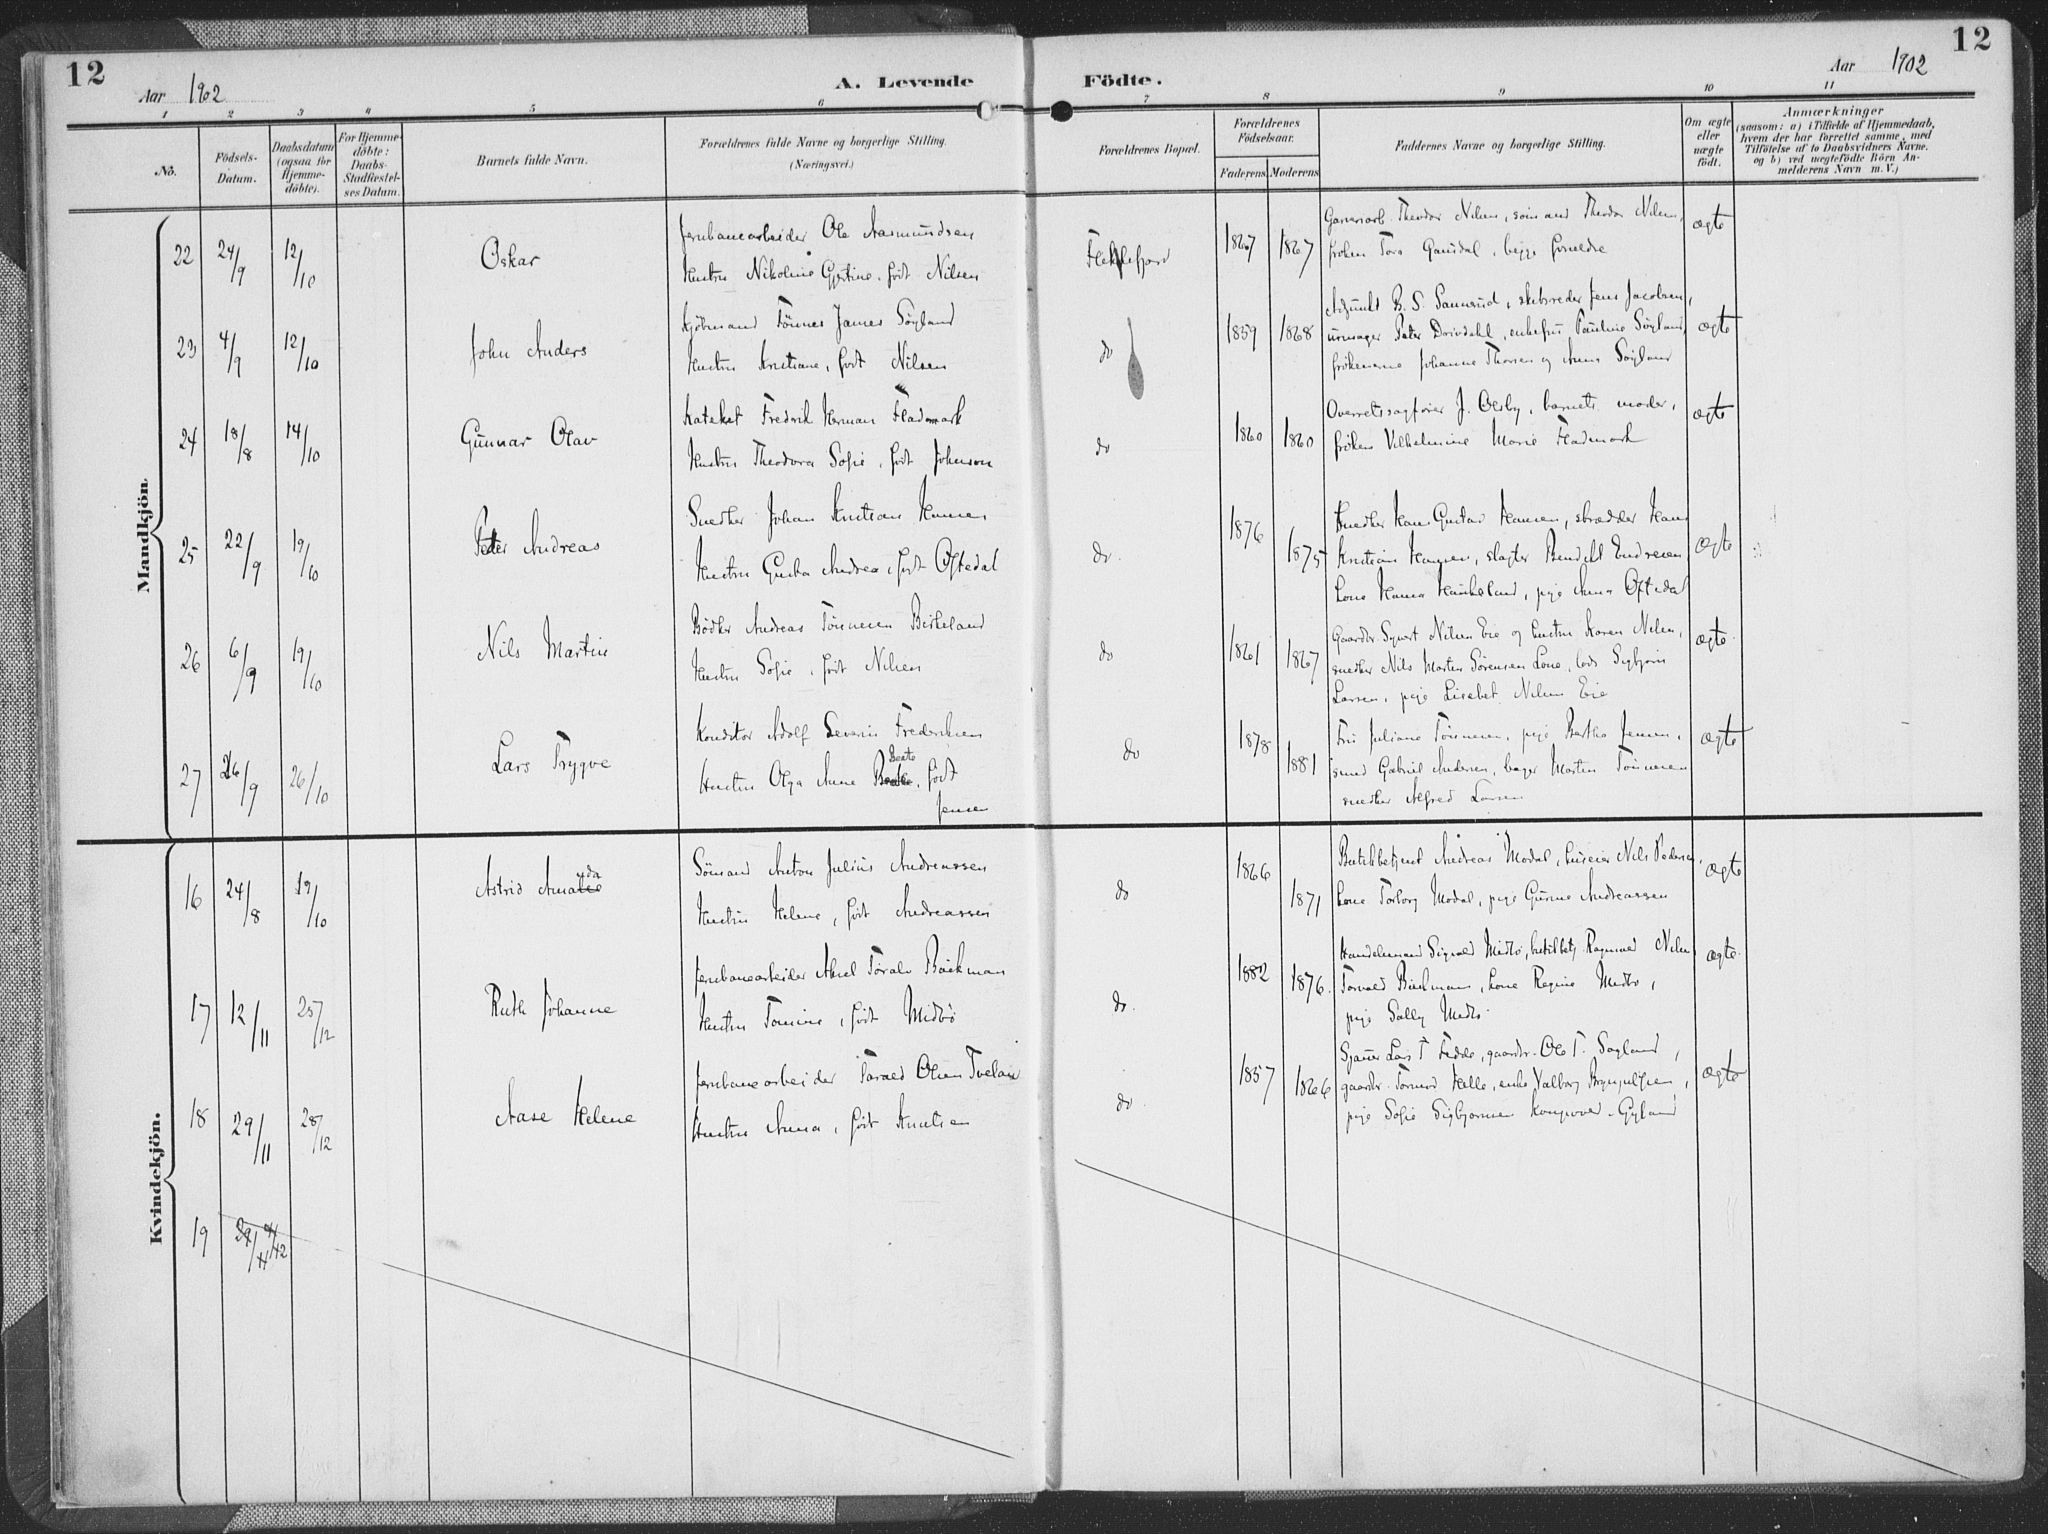 12
Aar 1902
A. Levende
Födte.
Aar 1902
12
1 2 3 4 5 6 7 8 9 10 11
No.
Födsels-
Datum.
Daabsdatum
(ogsaa for
Hjemme-
döbte).
For Hjemme-
döbte:
Daabs-
Stadfæstel-
ses Datum.
Barnets fulde Navn.
Forældrenes fulde Navne og borgerlige Stilling.
(Næringsvei.)
Forældrenes Bopæl.
Forældrenes
Födselsaar.
Faderens
Moderens
Faddernes Navne og borgerlige Stilling.
Om ægte
eller
uægte
födt.
Anmærkninger
(saasom: a) i Tilfælde af Hjemmedaab,
hvem der har forrettet samme, med
Tilföielse af to Daabsvidners Navne.
og b) ved uægtefödte Börn An-
melderens Navn m. V.)
Mandkjön.
22 24/9 12/10 Oskar
Jernbanearbeider Ole Aasmundsen
Hustru Nikoline Gjertine, født Nilsen
Flekkefjord 1867 1867
Theodor Nilsen, sømand Theodor Nilsen,
frøken Tora Gausdal, begge forældre
ægte
23 4/9 12/10 John Anders
Kjøbmand Tønnes James Søyland
Hustru Kristiane, født Nilsen
do 1859 1868
Adjunkt B. S. Sannerud, skibsreder Jens Jacobsen,
urmager Peter Drivdahl, enkefru Pauline Søyland,
frøkenerne Johanne Thorsen og Anna Søyland
ægte
24 18/8 14/10 Gunnar Olav
Kateket Fredrik Herman Fladmark
Hustru Theodora Sofie, født Johnson
do 1860 1860
Overretssagfører J. Olsby, barnets moder,
frøken Vilhelmine Marie Fladmark
ægte
25 22/9 19/10 Peter Andreas
Snedker Johan Kristian Hansen
Hustru Gusta Andrea, født Oftedal
do. 1876 1875
Snedker Hans Gustav Hansen, skrædder Hans
Kristian Hansen, slagter Bendikt Endresen
kone Hanna Haukeland, pige Anna Oftedal
ægte
26 6/9 19/10 Nils Martin
Bødker Andreas Tønnesen Birkeland
Hustru Sofie, født Nilsen
do 1861 1867
Gaardbr. Syvert Nilsen Eie og hustru Karen Nilsen,
snedker Nils Martin Sørensen Lone, lods Sigbjørn
Larsen, pige Lisebet Nilsen Eie
ægte
27 26/9 26/10 Lars Trygve
Konditor Adolf Severin Frederiksen
Hustru Olga Anne Beate, født
Jensen
do 1878 1881
Fru Juliane Tønnesen, pige Bertha Jensen,
smed Gabriel Andersen, bager Morten Tønnesen
snedker Alfred Larsen
ægte
Kvindekjön.
16 24/8 19/10 Astrid Amanda
Sömand Anton Julius Andreassen
Hustru Helene, født Andreassen
do 1866 1871
Butikbetjent Andreas Modal, huseier Nils Pedersen,
kone Torborg Modal, pige Gurine Andreassen
ægte
17 12/11 25/12 Ruth Johanne
Jernbanearbeider Aksel Toralv Bäckman
Hustru Tomine, født Midbö
do. 1882 1876.
Handelsmand Sigvald Midbö, butikbetj. Ragnvald Nilsen
Torvald Bäckman, kone Regine Midbö,
pige Sally Midbö.
ægte
18 29/11 28/12 Aase Helene
Jernbanearbeider Tarald Olsen Tvelan
Hustru Anna, født Knutsen
do. 1857 1866
Sjauer Lars T. Fedde, gaardbr. Ole T. Søyland,
gaardbr. Tormod Helle, enke Valborg Brynjulfsen,
pige Sofie Sigbjørnsen Kongevold-Gyland
ægte
19 29/11